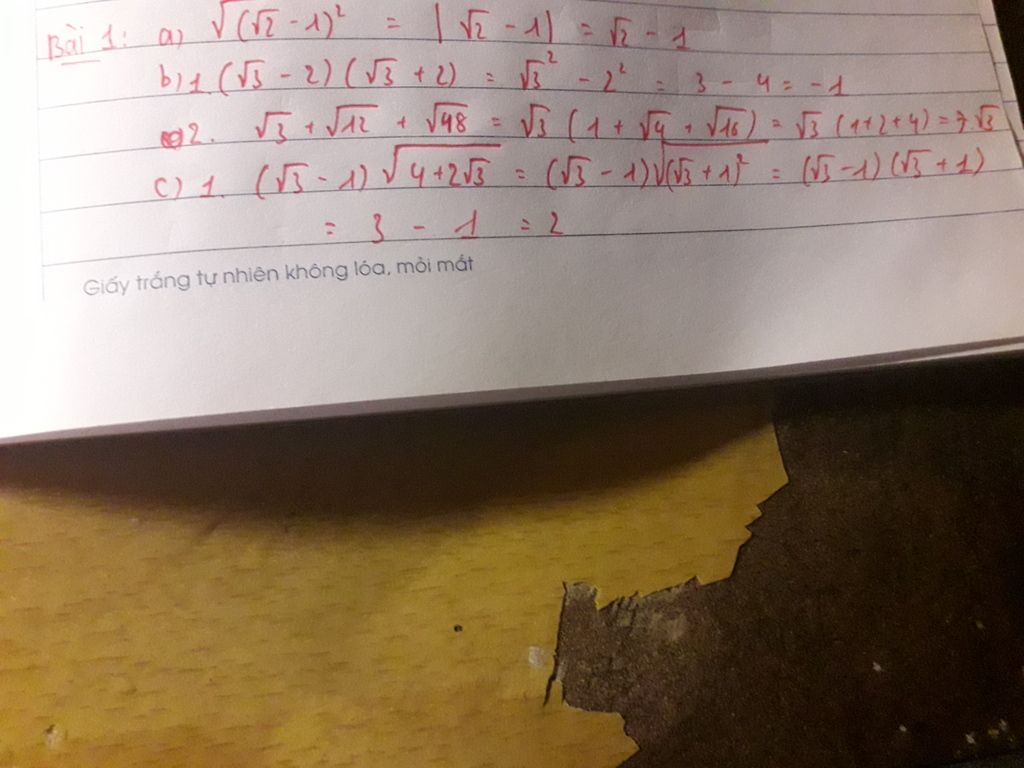 Bài 1: a) √(√2 - 1)² = |√2 - 1| = √2 - 1
b) 1 (√3 - 2)(√3 + 2) = √3² - 2² = 3 - 4 = -1
2. √3 + √12 + √48 = √3 (1 + √4 + √16) = √3 (1+2+4) = 7.√3
c) 1. (√3 - 1)√4+2√3 = (√3 - 1)√(√3 + 1)² = (√3 - 1)(√3 + 1)
= 3 - 1 = 2
Giấy trắng tự nhiên không lóa, mỏi mắt